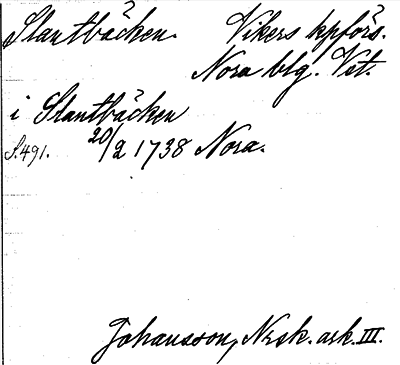 Slantbäcken. Vikers kpförs.
Nora blg. Vst.
i Slantbäcken
S.491. 20/2 1738 Nora.
Johansson, Nrsk. ark. III.